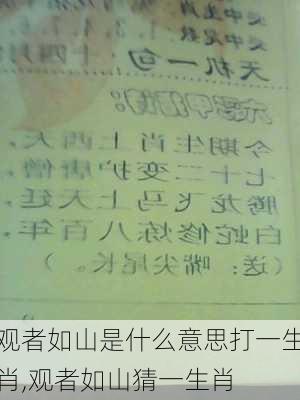 天机一句
今期生肖上西天,
七十二变护唐僧
腾龙飞马上天廷,
白蛇修炼八百年,
(送:嘴尖尾长。)
观者如山是什么意思打一生
肖,观者如山猜一生肖